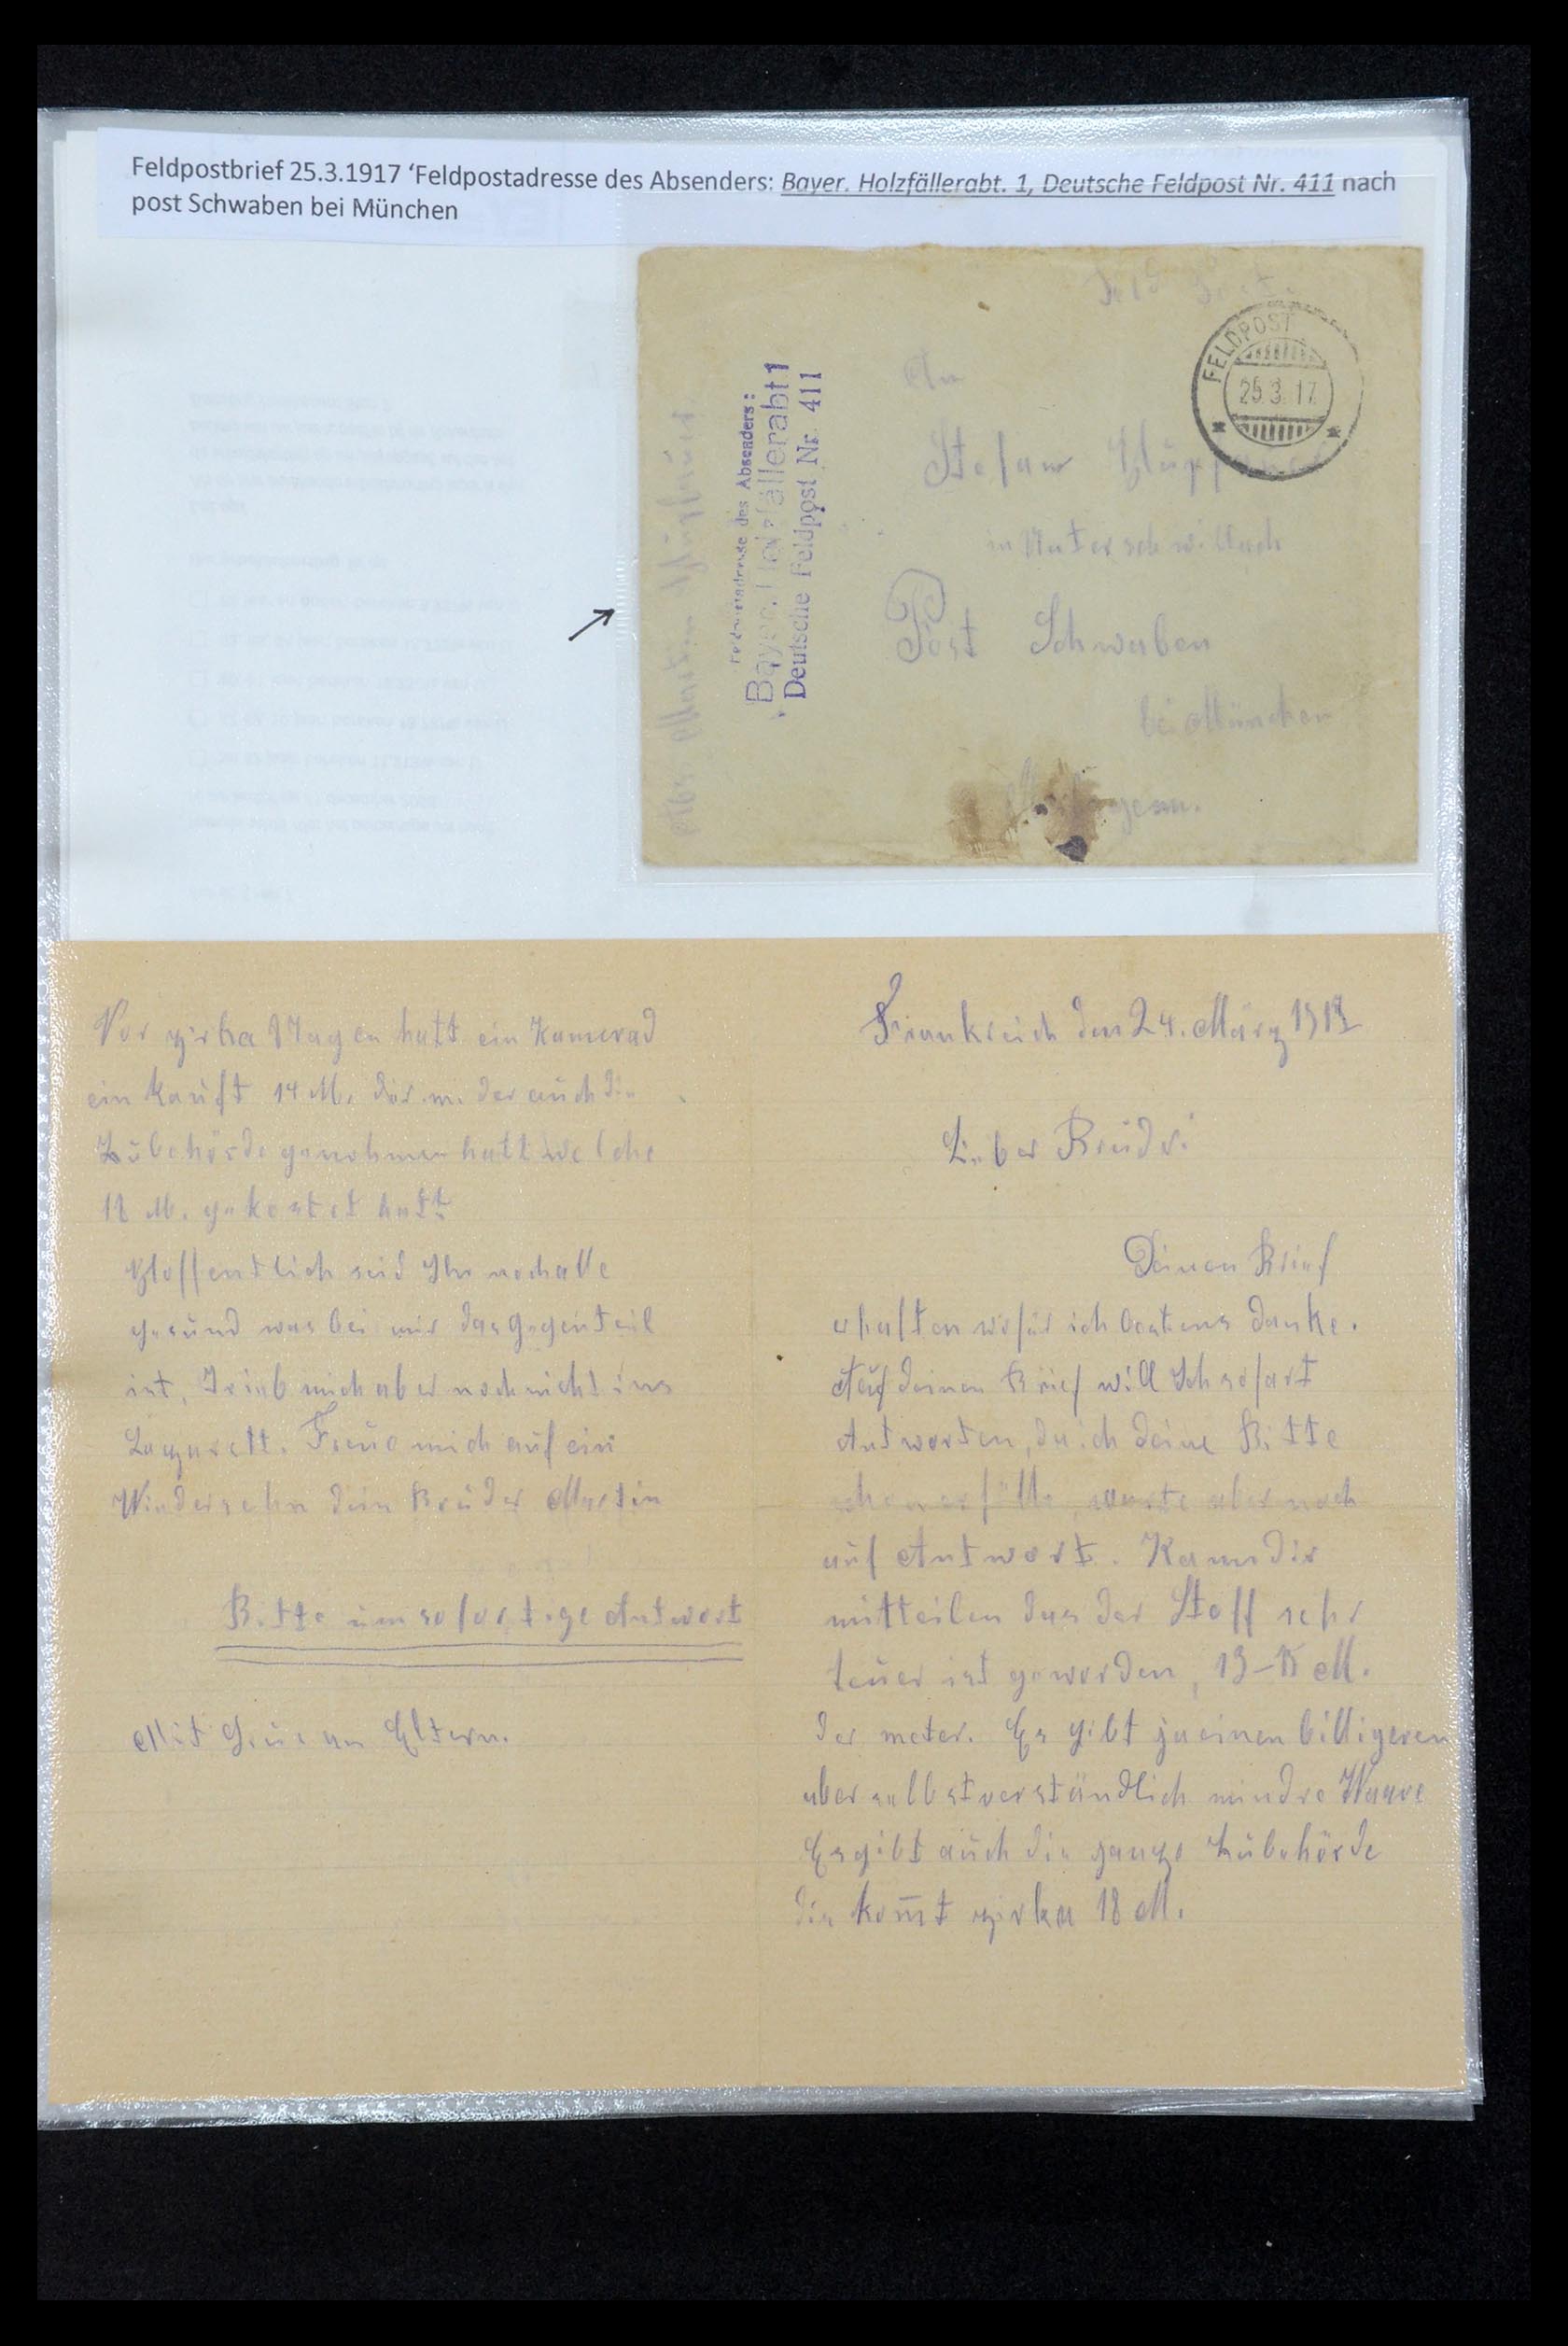 Feldpostbrief 25.3.1917 ‘Feldpostadresse des Absenders: Bayer. Holzfällerabt. 1, Deutsche Feldpost Nr. 411 nach
post Schwaben bei München
FELDPOST
25.3.17.
An
Stefan
in Unterschwillach
Post Schwaben
bei München
Feldpostadresse des Absenders:
Bayer. Holzfällerabt 1
Deutsche Feldpost Nr. 411
Abs. Martin
Frankreich den 24. März
Lieber Bruder!
Deinen Brief
erhalten wofür ich bestens danke.
Auf deinen Brief will Ich sofort
Antworten, da ich deine Bitte
warte aber noch
auf Antwort. Kann dir
mitteilen das der Stoff sehr
teuer ist geworden, 13-15 M.
der meter. Es gibt ja einen billigeren
aber selbstverständlich mindre Waare
Es gibt auch die ganze Zubehörde
die kom̅t zirka 18 M.
Vor zirka Tagen hatt ein Kamerad
ein kauft 14 M. der m. der auch die
Zubehörde genohmen hatt welche
18 M. gekostet hatt
Hoffentlich seid Ihr noch alle
gesund was bei mir das gegenteil
ist, mich aber noch nicht ins
Lazarett. Freue mich auf ein
Wiedersehn dein Bruder Martin
Bitte um sofortige Antwort
Mit an Eltern.